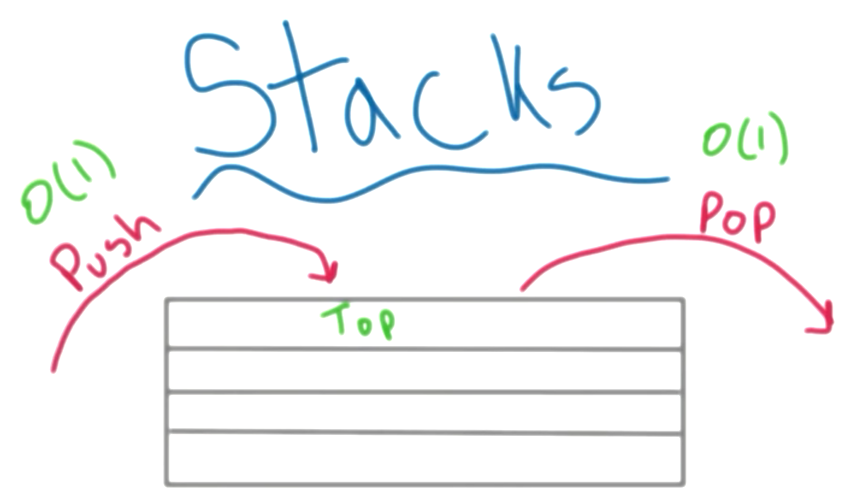 Stacks
O(1)
Push
O(1)
Pop
Top